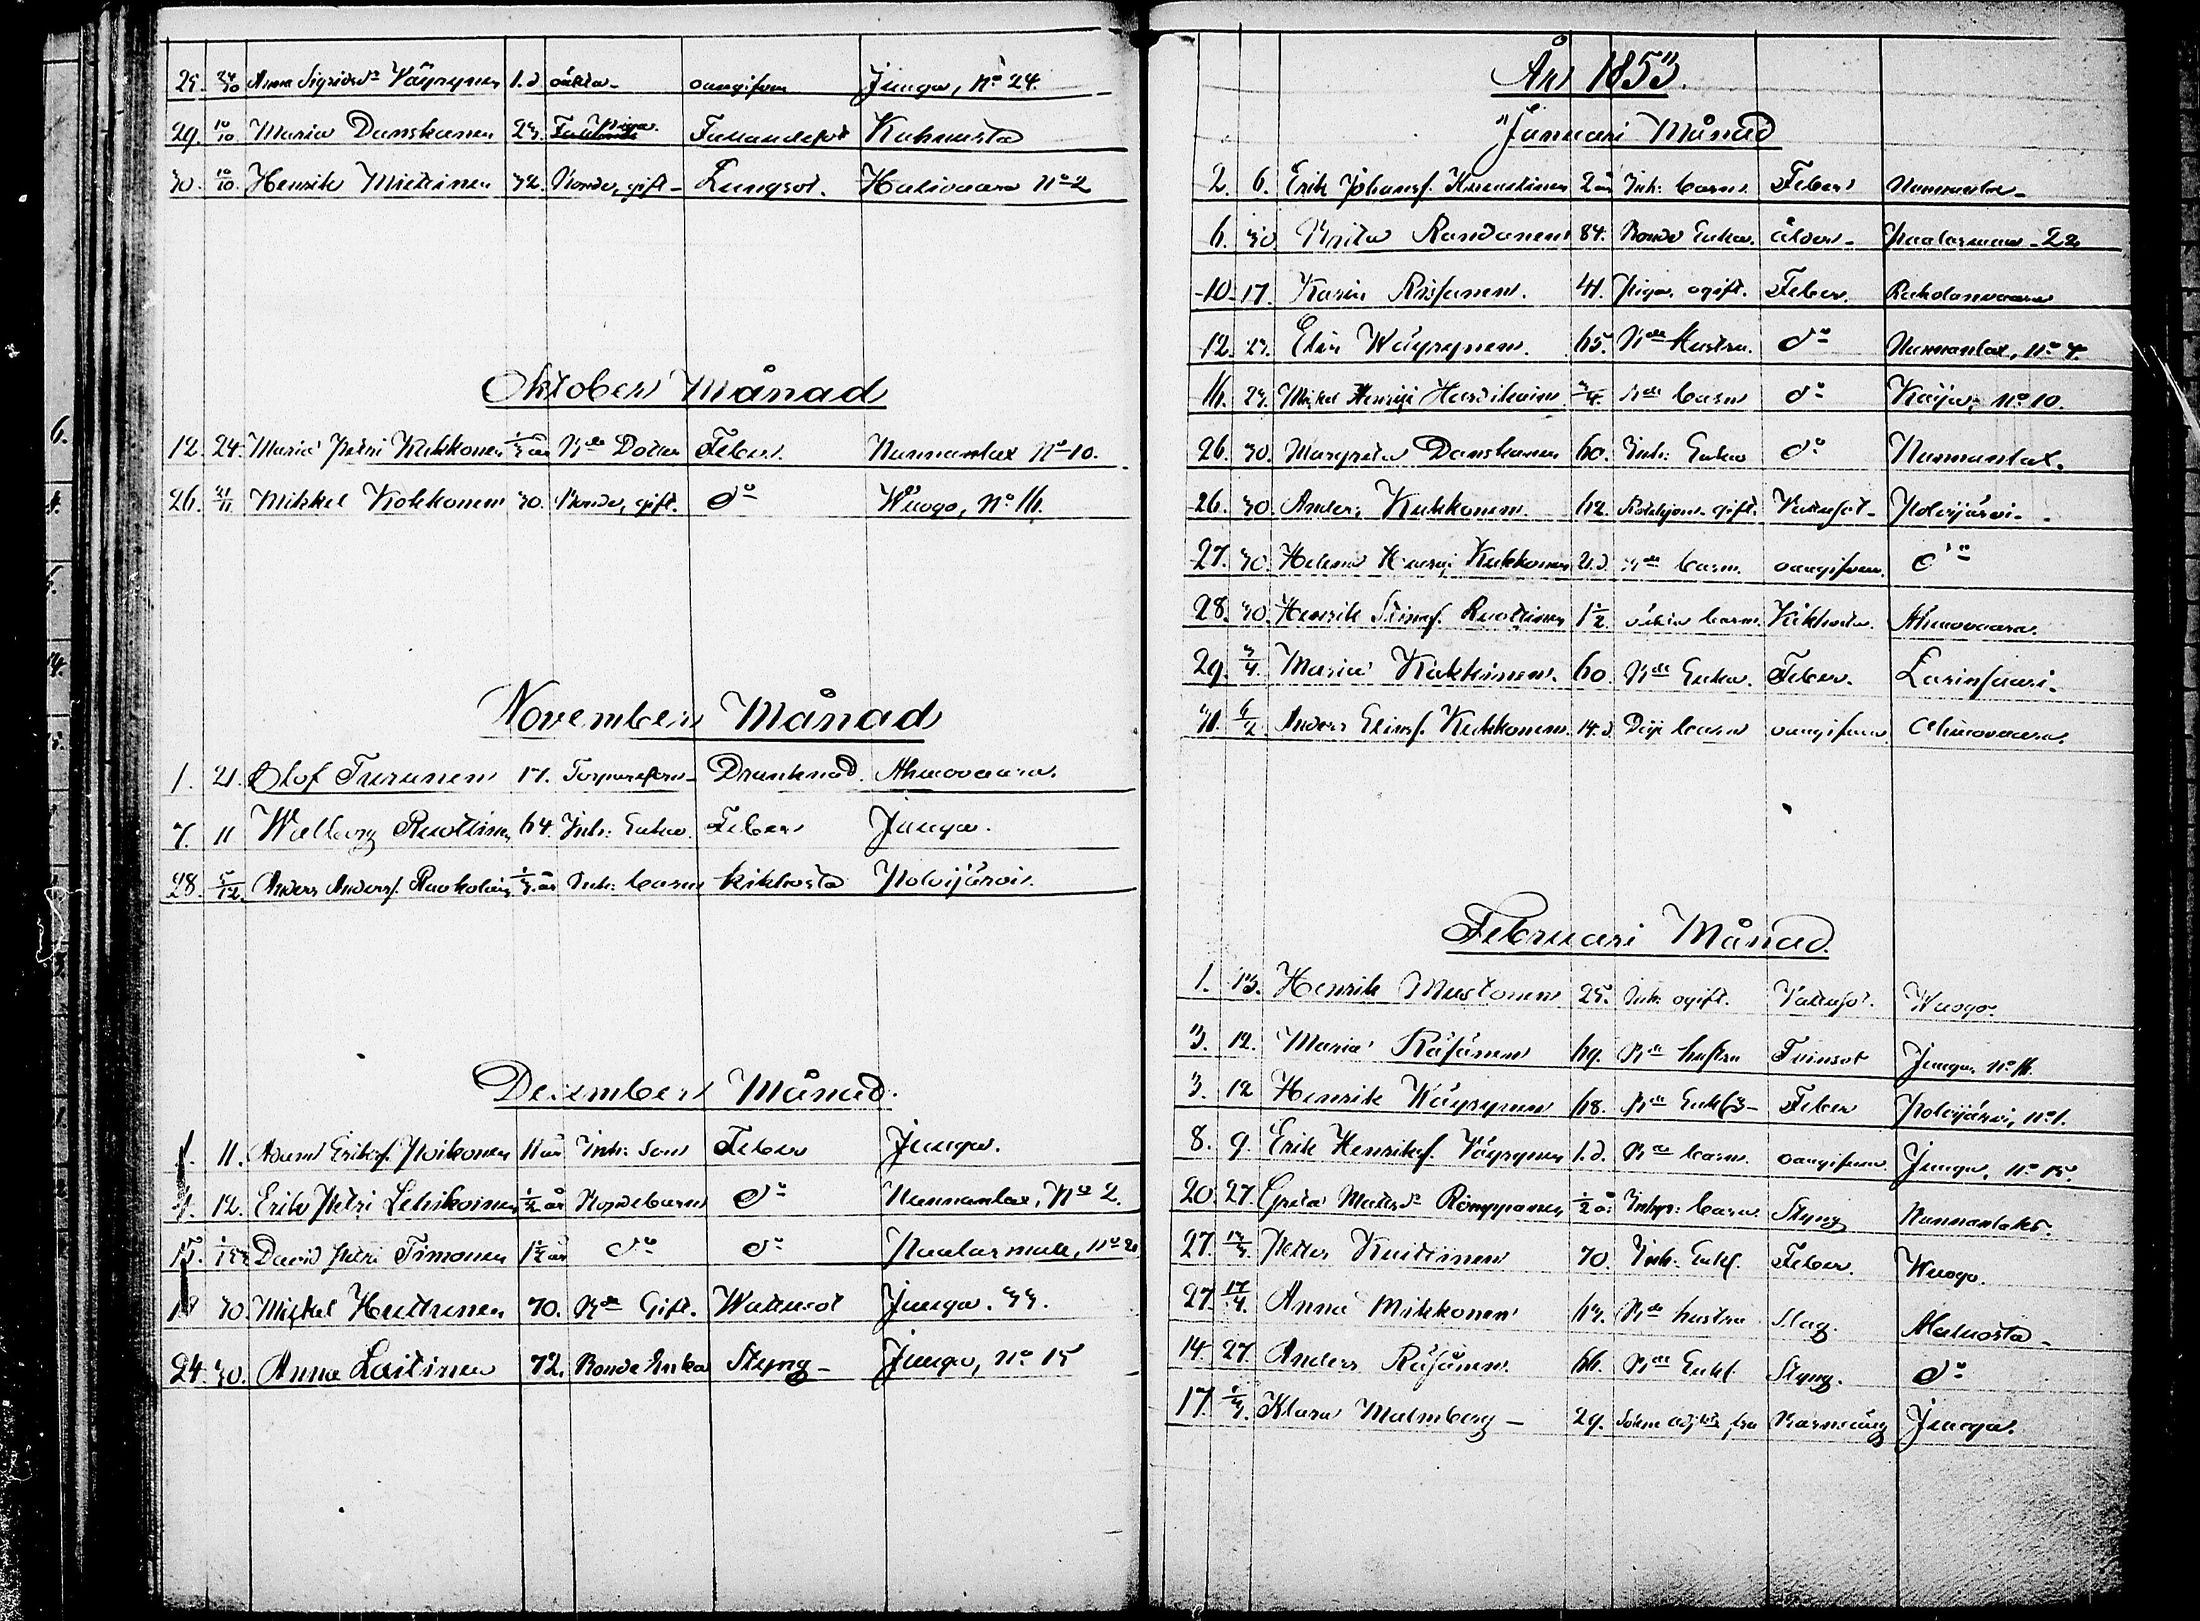 25. Anna Sigridsd:r Väyrynen 1.d oäkta oangifven Junga, No 24.
29. 10/10 Maria Danskanen 23. Piga. Fallandesot Kuhnusta
30. 10/10. Henrik Miettinen 32. Bonde, gift - Lungsot. Hativaara No 2
Oktober Månad
12. 24. Maria Petri Kukkonen Bde Dotter Feber. Nunnanlax No 10.
26. 21/11 Mikkel Kokkonen 30. Bonde, gift. do Wuogo, No 16.
November Månad
1. 21. Olof Turunen 17. Drunknad. Ahmovaara.
7. 11 Walborg Ruottinen 64. Inh: Enka. Feber Junga.
28. 5/12. Anders Andersf. 1/3 år Inh: barn Kikhosta Polvijärvi.
December Månad.
11. Adam Eriksf. Poikonen 11 år Inh: Son Feber Junga.
12. Erik Petri Lehikoinen 1/2 år Bondebarn do Nunnanlax, No 2.
15. David Petri Timonen 1 1/2 år do do Paalasmaa, No 21
30. Mickel Huttunen 70. Bde Gift. Wattusot Junga. 33.
24. 30. Anna Laitinen 72. Bonde Enka Styng - Junga, No 15
År 1853.
Januari Månad
2. 6. Erik Johansf. 2 år Inh: barn Feber Nunnanlax -
6. 30. Brita Randanen 84. Bonde Enka. ålder - Paalasmaa - 22
10 - 17. Karin Risfanen. 41. Piga, ogift. Feber.
12. 23. Elin Wäyrynen. 65. Bde Hustru. do Nunnanlax, No 7.
16. 23. Mickel Henriji 3/4. Bde barn do No 10.
26. 30. Margreta Danskanen 60. Inh: Enka do Nunnanlax.
26. 30 Anders Kukkonen. 62 gift. Vattusot - Polvijärvi.
27. 30. Helena Henriji Kukkonen 21.d Bde barn. oangifven. do
28. 30. Henrik Stinaf. Ruottinen 1 1/2 oäkta barn. Kikhosta. Ahmovaara.
29. 3/4. Maria Kukkonen. 60. Bde Enka. Feber. Larinsaari.
31. 6/2 Anders Elinsf. Kukkonen. 14.d barn oangifven. Ahmovaara.
Februari Månad.
1. 13. Henrik Mustonen 25. Inh. ogift. Vattusot. Wuogo.
3. 12. Maria Räfänen 69. Bde hustru Tvinsot Junga, No 16.
3. 12 Henrik Wäyrynen 68. Bde Enkl: Feber Polvijärvi, No 1.
8. 9. Erik Henriksf. Väyrynen 1.d. Bde barn. oangifven. Junga, No 15.
20. 27. Greta Matsd:r Römppänen 1/2 å. Inhys: barn Styng Nunnanlaks.
27. 13/3. Petter Kuittinen 70. Inh. Enkl. Feber. Wuogo.
27. 17/4. Anna Mikkonen 63. Bde hustru Slag.
14. 27. Anders Räfänen. 66. Bde Enkl. Styng. do
17. 1/3. Klara Malmberg - 29. Barnsäng Junga.